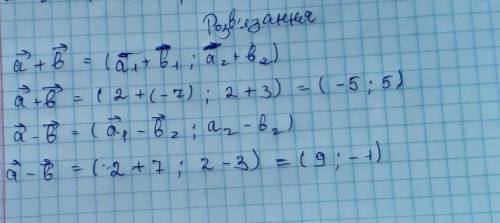 Розв'язання
a⃗ + b⃗ = (a⃗₁ + b⃗₁ ; a⃗₂ + b₂)
a⃗ + b⃗ = (2 + (-7) ; 2 + 3) = (-5 ; 5)
a⃗ - b⃗ = (a⃗₁ - b⃗₂ ; a₂ - b₂)
a⃗ - b⃗ = (2 + 7 ; 2 - 3) = (9 ; -1)